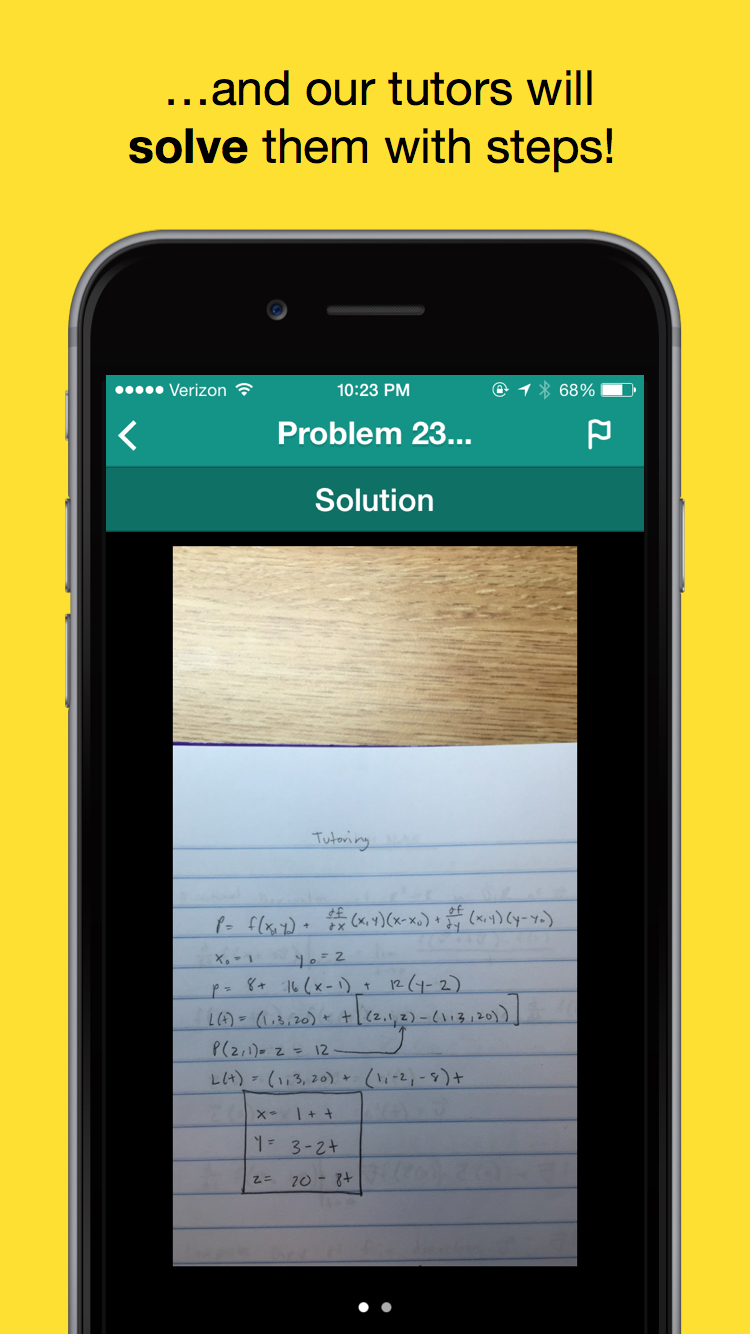 …and our tutors will
solve them with steps!
Verizon 10:23 PM 68%
Problem 23...
Solution
Tutoring
P= f(x₀,y₀) + ∂f/∂x (x,y)(x-x₀) + ∂f/∂y (x,y)(y-y₀)
x₀=1 y₀=2
p= 8+ 16(x-1) + 12(y-2)
L(t)= (1,3,20) + t[(2,1,z)-(1,3,20))]
P(2,1)= z = 12
L(t)= (1,3,20) + (1,-2,-8)t
x= 1+t
y= 3-2t
z= 20-8t